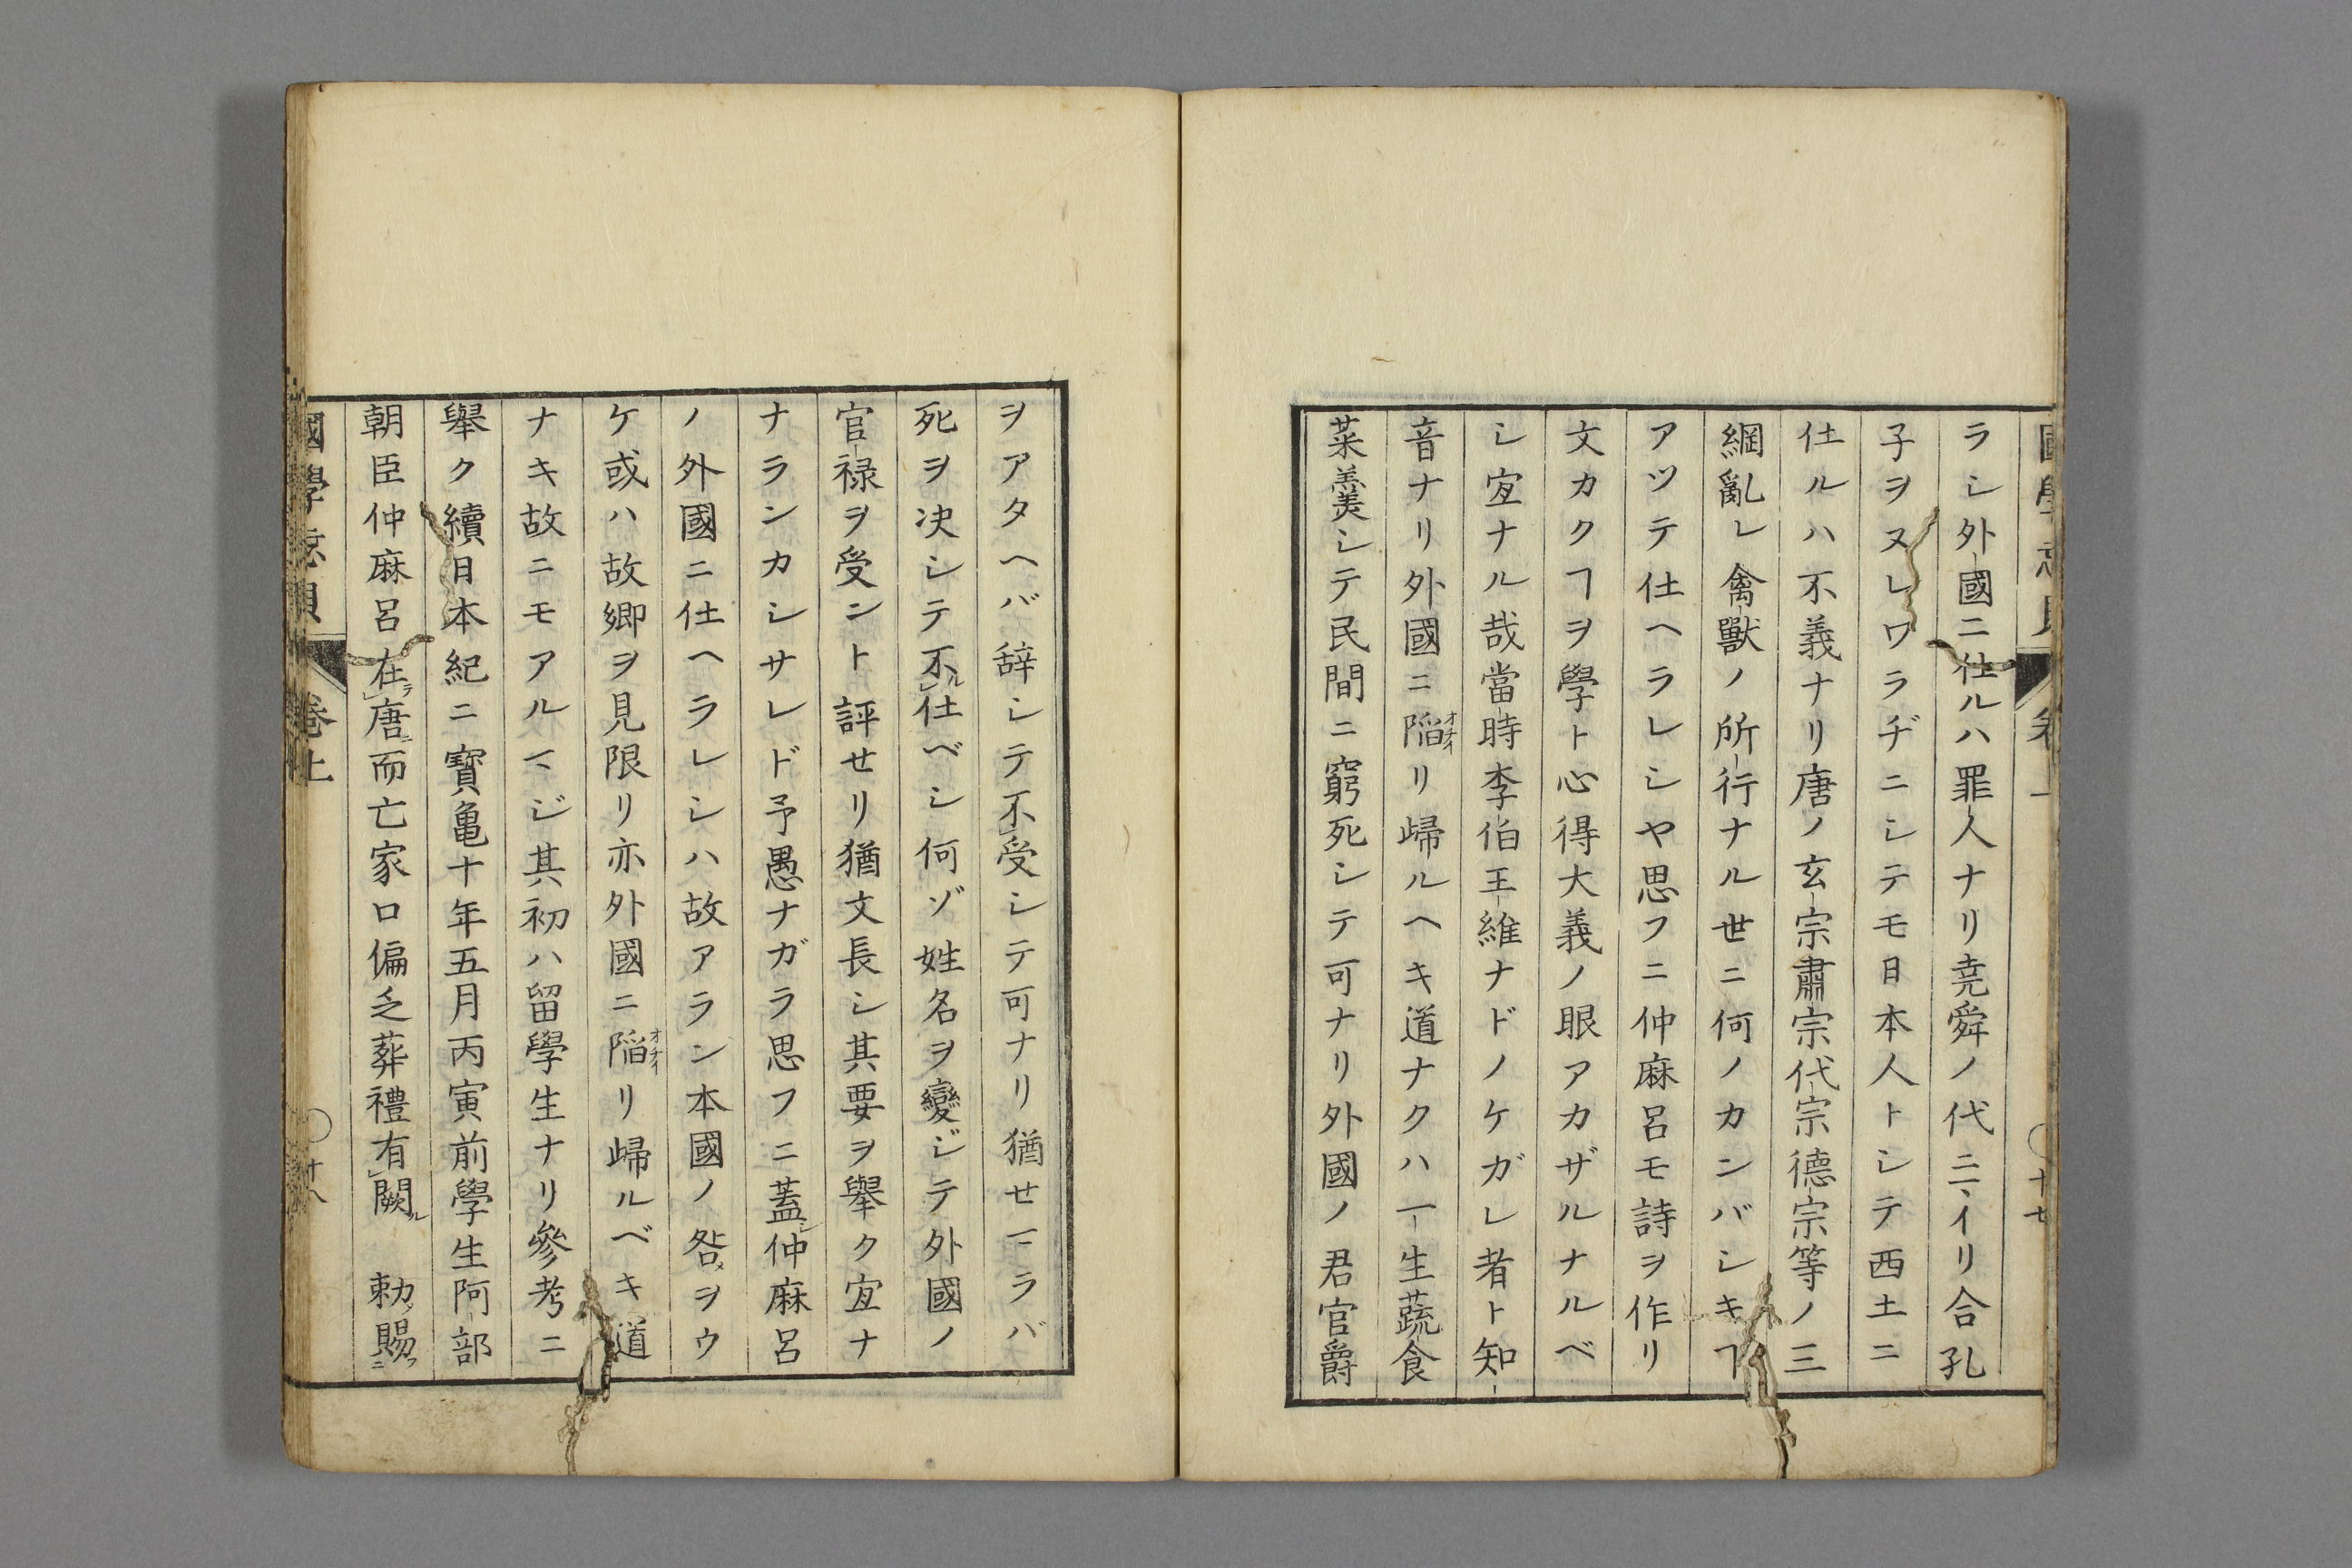 ラシ外國ニ仕ルハ罪人ナリ尭舜ノ代ニヽイリ合孔
子ヲヌレワラヂニシテモ日本人トシテ西土ニ
仕ルハ不義ナリ唐ノ玄宗肅宗代宗德宗等ノ三
綱亂レ禽獸ノ所行ナル世ニ何ノカンバシキヿ
アツテ仕ヘラレシヤ思フニ仲麻呂モ詩ヲ作リ
文カクヿヲ學ト心得大義ノ眼アカザルナルベ
シ宜ナル哉當時李伯王維ナドノケガレ者ト知
音ナリ外國ニ陷オチイリ歸ルヘキ道ナクハ一生蔬食
菜羮シテ民間ニ窮死シテ可ナリ外國ノ君官爵
ヲアタヘバ辞シテ不受シテ可ナリ猶せマラバ
死ヲ决シテ不ル仕ベシ何ゾ姓名ヲ變ジテ外國ノ
官禄ヲ受ント評せリ猶文長シ其要ヲ擧ク宜ナ
ナランカシサレド予愚ナガラ思フニ蓋シ仲麻呂
ノ外國ニ仕ヘラレシハ故アラン本國ノ咎メヲウ
ケ或ハ故郷ヲ見限リ亦外國ニ陷オチイリ歸ルベキ道
ナキ故ニモアルマジ其初ハ留學生ナリ參考ニ
擧ク續日本紀ニ寶亀十年五月丙寅前學生阿部
朝臣仲麻呂在テ唐ニ而亡家口偏乏葬禮有闕ル　勅賜フニ
國學
卷上